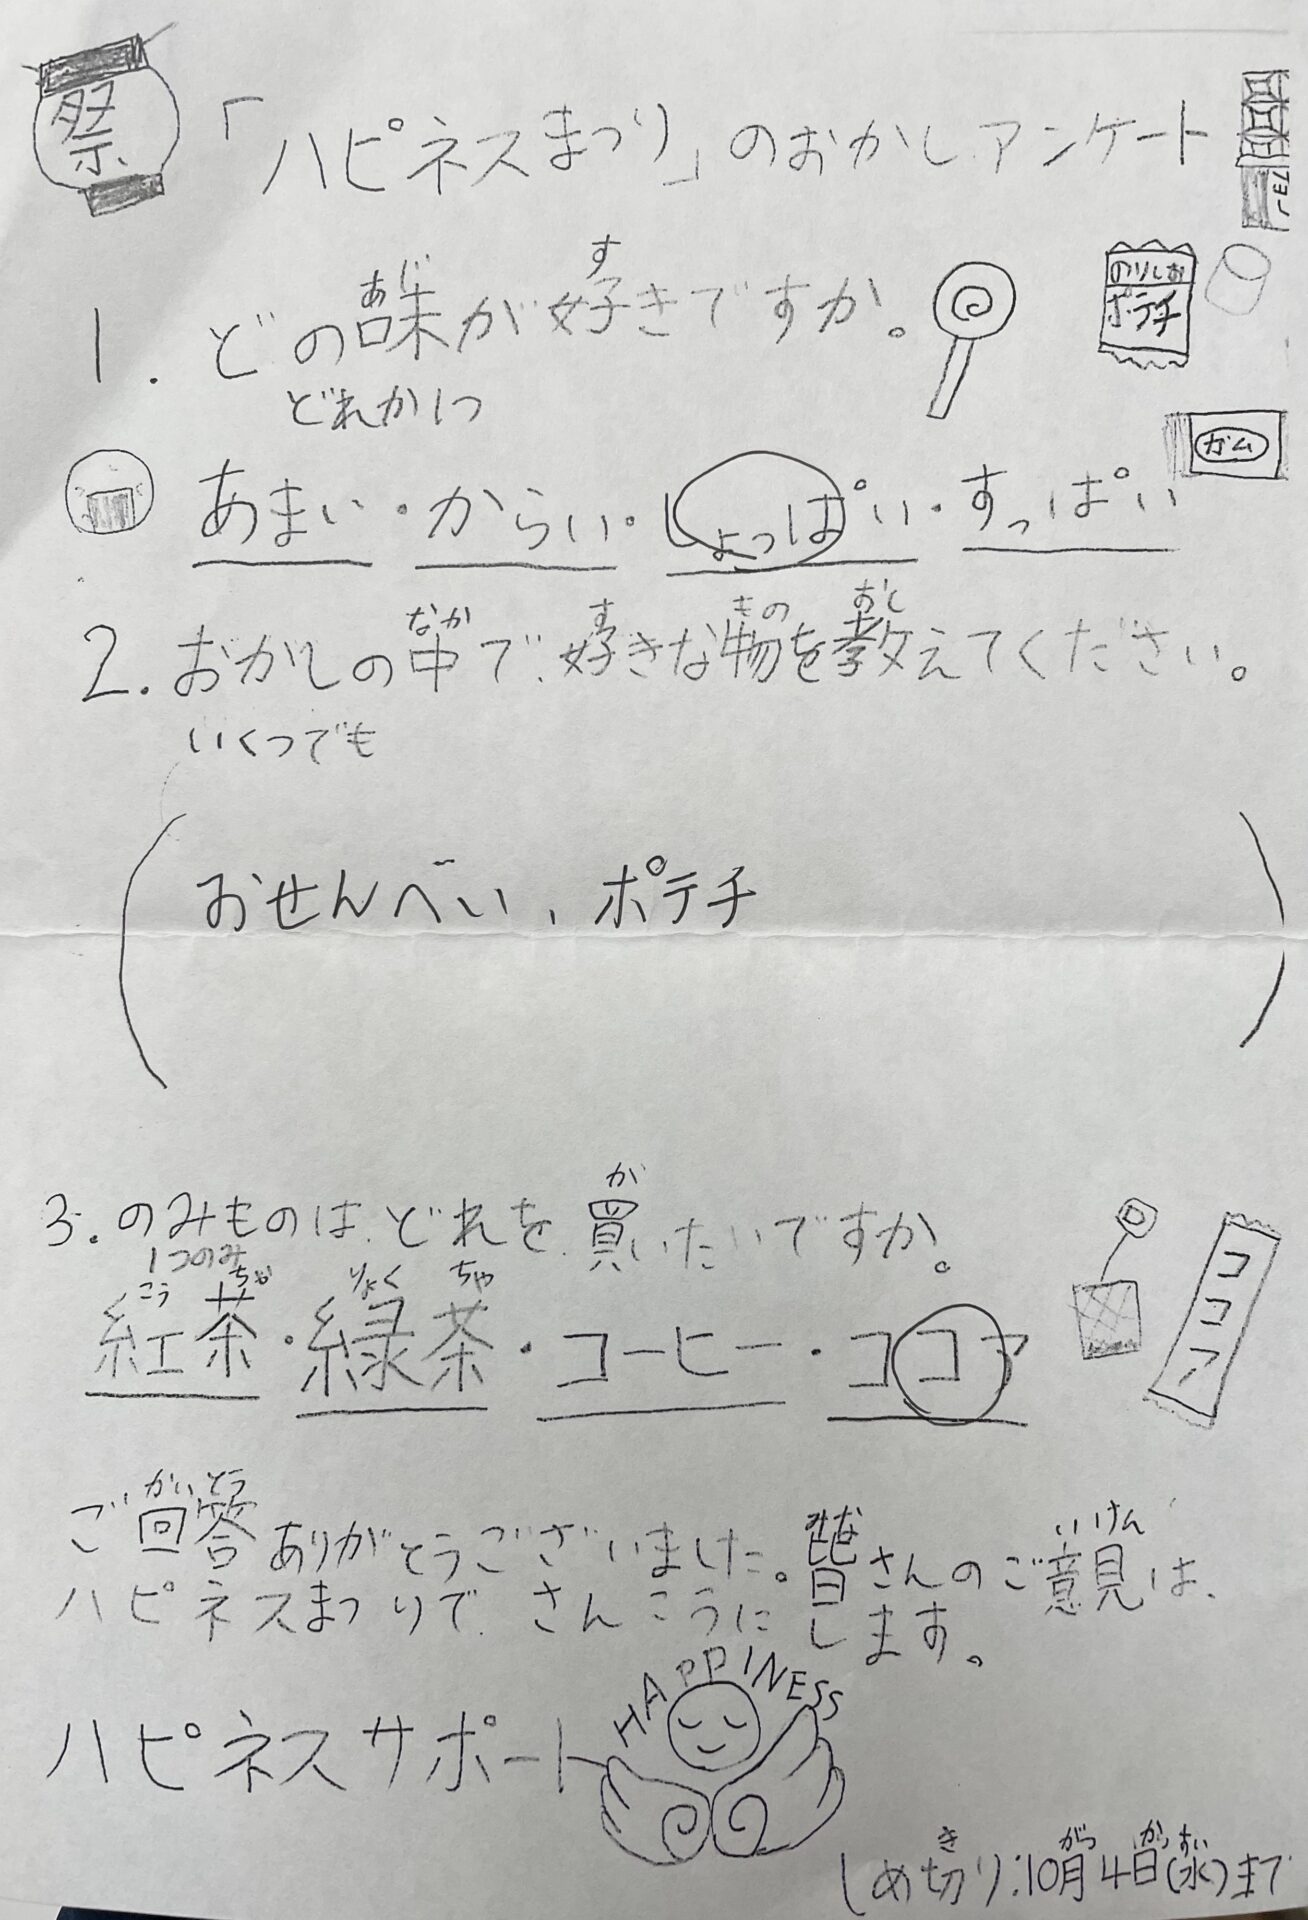 祭
「ハピネスまつり」のおかしアンケート
チョコ
あじ す
1. どの味が好きですか。
どれか1つ
のりしお
ポテチ
ガム
あまい・からい・しょっぱい・すっぱい
なか す もの おし
2. おかしの中で、好きな物を教えてください。
いくつでも
おせんべい、ポテチ
か
3. のみものは、どれを、買いたいですか。
1つのみ
こう ちゃ りょく ちゃ
紅茶・緑茶・コーヒー・ココア
ココア
かいとう みな いけん
ご回答ありがとうございました。皆さんのご意見は、
ハピネスまつりで、さんこうにします。
HAPPINESS
ハピネスサポート
き がつ か すい
しめ切り:10月4日(水)まで